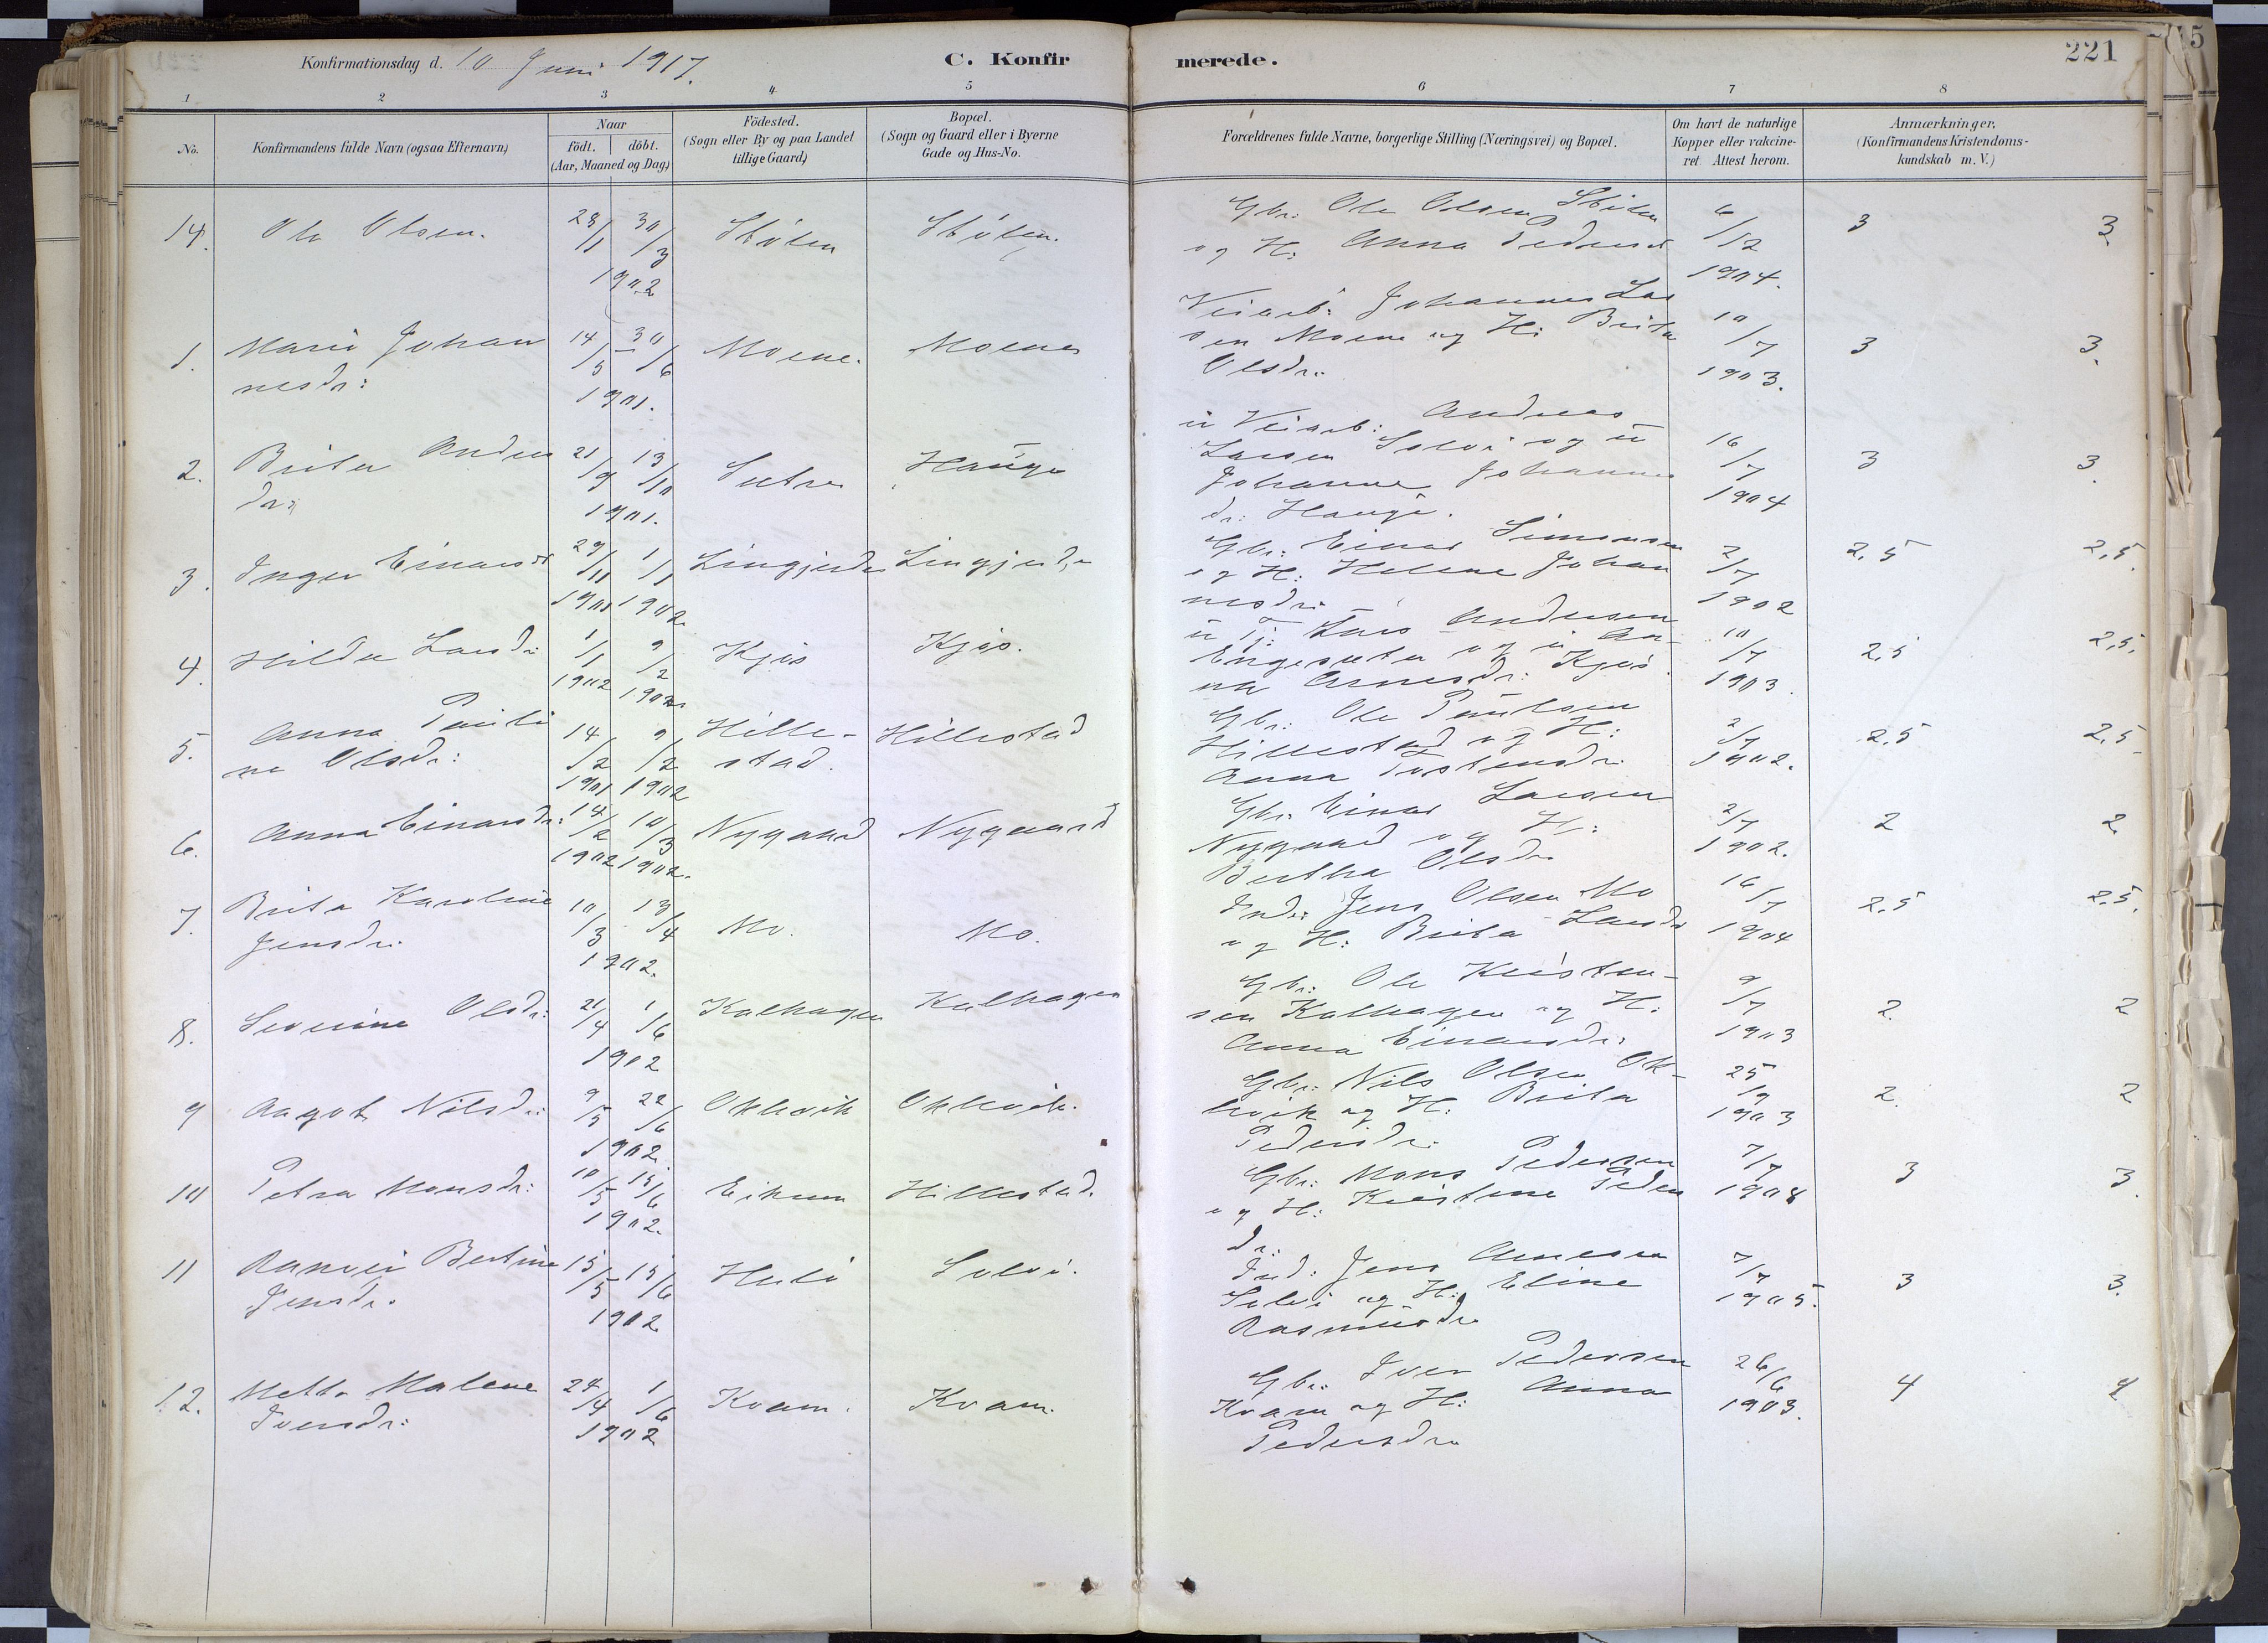 Konfirmationsdag d. 10 Juni 1917. C. Konfirmerede. 221
1 2 3 4 5 6 7 8
No. Konfirmandens fulde Navn (ogsaa Efternavn) Naar födt. döbt. (Aar, Maaned og Dag) Födested. (Sogn eller By og paa Landet tillige Gaard) Bopæl. (Sogn og Gaard eller i Byerne Gade og Hus-No. Forældrenes fulde Navne, borgerlige Stilling (Næringsvei) og Bopæl. Om havt de naturlige Kopper eller vakcineret Attest herom. Anmærkninger, (Konfirmandens Kristendomskundskab m. V.)
14. Ole Olsen. 28/1 30/3 1902 Stölen Stölen. Gbr. Ole Olsen Stölen
og H: Anna Pedersd 6/12 1904. 3 3
1. Marie Johan 14/5 30/6 1901. Moene. Moene Veiarb: Johannes Lar
nesdr: sen Moene og H: Brita 10/7 1903. 3 3.
Olsdr.
2. Brita Andrea 21/9 13/10 1901. Sætre Hauge ü Veiarb: Andreas
dr: Larsen Solvi og ü 16/7 1904 3 3.
Johanne Johannes
dr: Haugi.
3. Inger Einarsd 29/11 1901 1/1 1902 Lingjerde Lingjerde Gbr: Einar Simonsen
og H: Helene Johan 2/7 1902 2,5 2,5.
nesdr:
4. Hilda Larsdr: 1/1 1902 9/2 1902 Kjös Kjös. ü Tj: Lars Andersen
Engesæter og ü An- 10/7 1903. 2,5 2,5.
na Arnesdr: Kjös.
5. Anna Pauli 14/2 1901 9/2 1902 Hille- Hillestad Gbr: Ole Paulsen
ne Olsdr: stad. Hillestad og H: 2/7 1902. 2,5 2,5.
Anna Tostensdr.
6. Anna Einarsdr: 14/2 1902 10/3 1902. Nygaard Nygaard Gbr. Einar Larsen
Nygaard og H: 2/7 1902. 2 2
Bertha Olsdr.
7. Brita Karoline 10/3 13/4 1902. Mo. Mo. Inds: Jens Olsen Mo
Jensdr. og H: Brita Larsdr 16/7 1904 2,5 2,5.
8. Severine Olsdr: 21/4 1/6 1902 Kalhagen Kalhagen Gbr: Ole Kristen-
sen Kalhagen og H: 9/7 1903 2. 2
Anna Einarsdr:
9 Aagot Nilsdr: 9/5 22/6 1902. Oklevik Oklevik. Gbr: Nils Olsen Ok-
levik og H: Brita 25/9 1903 2. 2
Pedersdr.
10 Petra Monsdr: 10/5 15/6 1902. Eikum Hillestad. Gbr: Mons Pedersen
og H: Kristine Peders 7/7 1908 3 3.
dr:
11 Ranvei Bertine 15/5 15/6 1902. Huli Solvi. Ind: Jens Arnesen
Jensdr. Solvi og H: Eline 7/7 1905. 3 3.
Rasmusdr.
12. Metta Malene 24/4 1/6 1902 Kvam. Kvam. Gbr: Iver Pedersen
Iversdr: Kvam og H: Anna 26/6 1903. 4 4
Pedersdr.